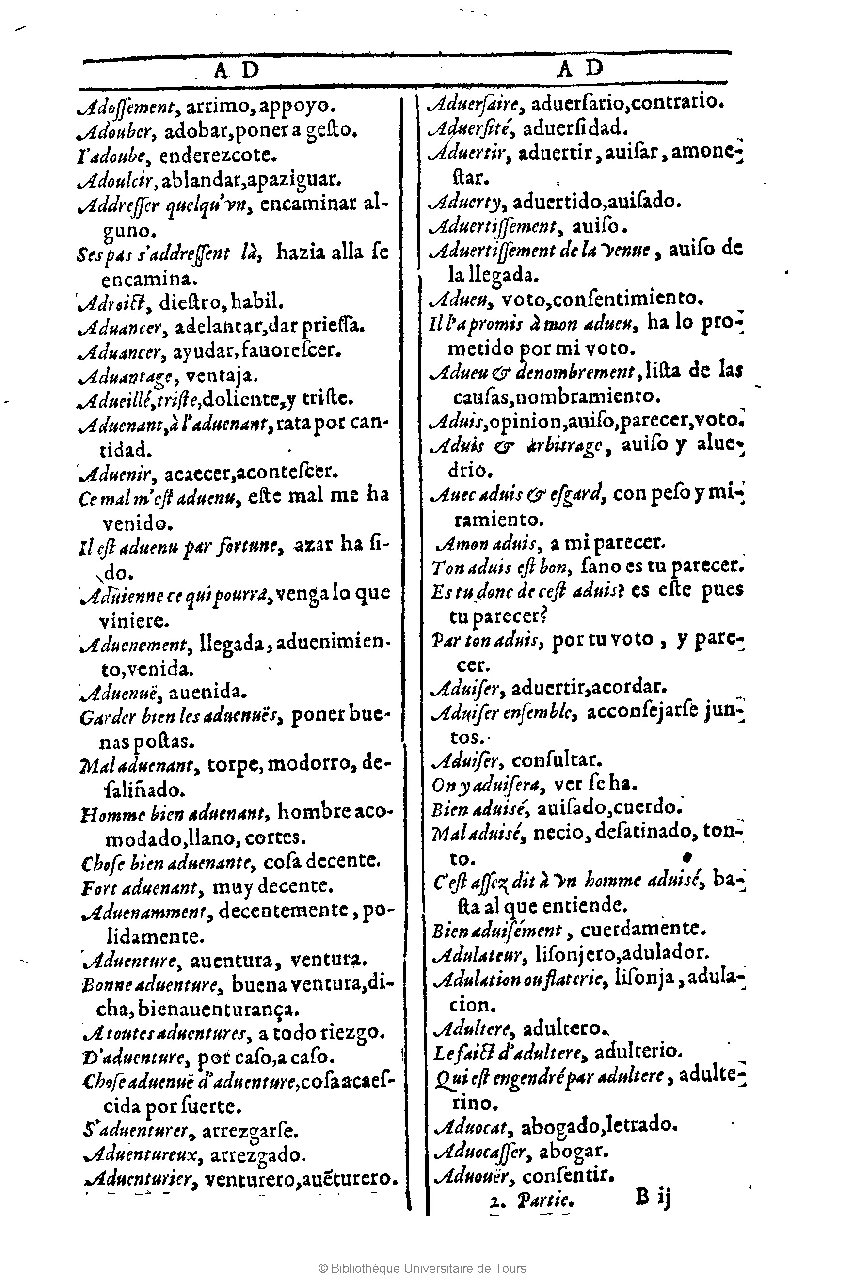 A D
Adoſſement, arrimo, appoyo.
Adouber, adobar, poner a geſto.
I'adoube, enderezcote.
Adoulcir, ablandar, apaziguar.
Addreſſer quelqu'vn, encaminar al-
guno.
Ses pas s'addreſſent là, hazia alla ſe
encamina.
Adroict, dieſtro, habil.
Aduancer, adelantar, dar prieſſa.
Aduancer, ayudar, fauoreſcer.
Aduantage, ventaja.
Adueillé, triſte, doliente, y triſte.
Aduenant, à l'aduenant, rata por can-
tidad.
Aduenir, acaecer, aconteſcer.
Ce mal m'eſt aduenu, eſte mal me ha
venido.
Il eſt aduenu par fortune, azar ha ſi-
do.
Aduienne ce qui pourra, venga lo que
viniere.
Aduenement, llegada, aduenimien-
to, venida.
Aduenuë, auenida.
Garder bien les aduenuës, poner bue-
nas poſtas.
Mal aduenant, torpe, modorro, de-
ſaliñado.
Homme bien aduenant, hombre aco-
modado, llano, cortes.
Choſe bien aduenante, coſa decente.
Fort aduenant, muy decente.
Aduenamment, decentemente, po-
lidamente.
Aduenture, auentura, ventura.
Bonne aduenture, buena ventura, di-
cha, bienauenturança.
A toutes aduentures, a todo riezgo.
D'aduenture, por caſo, a caſo.
Choſe aduenuë d'aduenture, coſa acaeſ-
cida por ſuerte.
S'aduenturer, arrezgarſe.
Aduentureux, arrezgado.
Aduenturier, venturero, auẽturero.
A D
Aduerſaire, aduerſario, contrario.
Aduerſité, aduerſidad.
Aduertir, aduertir, auiſar, amone-
ſtar.
Aduerty, aduertido, auiſado.
Aduertiſſement, auiſo.
Aduertiſſement de la venue, auiſo de
la llegada.
Adueu, voto, conſentimiento.
Il l'a promis à mon adueu, ha lo pro-
metido por mi voto.
Adueu & denombrement, liſta de las
cauſas, nombramiento.
Aduis, opinion, auiſo, parecer, voto.
Aduis & arbitrage, auiſo y alue-
drio.
Auec aduis & eſgard, con peſo y mi-
ramiento.
A mon aduis, a mi parecer.
Ton aduis eſt bon, ſano es tu parecer.
Es tu donc de ceſt aduis? es eſte pues
tu parecer?
Par ton aduis, por tu voto, y pare-
cer.
Aduiſer, aduertir, acordar.
Aduiſer enſemble, acconſejarſe jun-
tos.
Aduiſer, conſultar.
On y aduiſera, ver ſe ha.
Bien aduiſé, auiſado, cuerdo.
Mal aduiſé, necio, deſatinado, ton-
to.
C'eſt aſſez dit à vn homme aduiſé, ba-
ſta al que entiende.
Bien aduiſément, cuerdamente.
Adulateur, liſonjero, adulador.
Adulation ou flaterie, liſonja, adula-
cion.
Adultere, adultero.
Le faict d'adultere, adulterio.
Qui eſt engendré par adultere, adulte-
rino.
Aduocat, abogado, letrado.
Aduocaſſer, abogar.
Aduouër, conſentir.
2. Partie. B ij
© Bibliothèque Universitaire de Tours